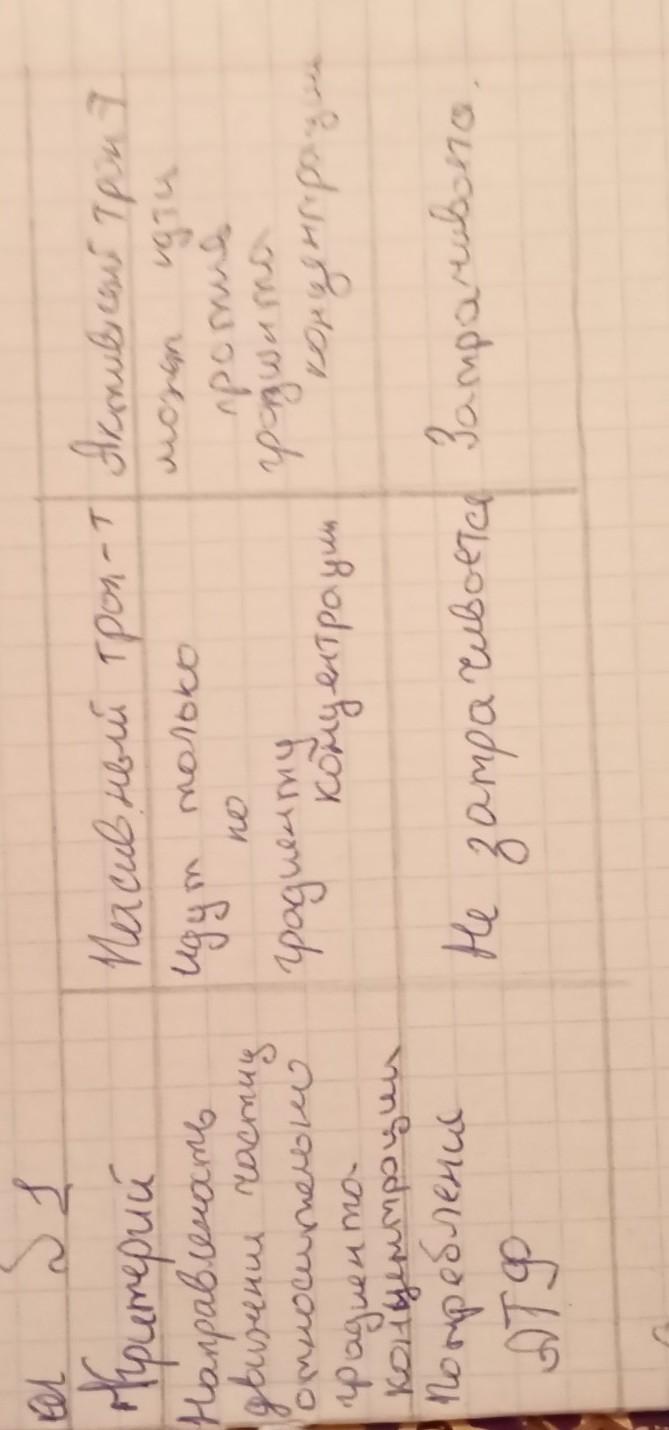 №1
Критерий
Пасивный тран-т
Активный тран-т
Направленость
движении частиц
относительно
градиента
концентрации
идут только
по
градиенту
концентрации
может идти
против
градиента
концентрации
Потребление
АТФ
Не затрачивается
Затрачивала.